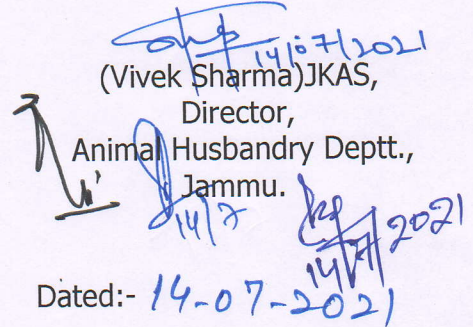 14/07/2021
(Vivek Sharma)JKAS,
Director,
Animal Husbandry Deptt.,
Jammu.
14/7
14/7/2021
Dated:- 14-07-2021